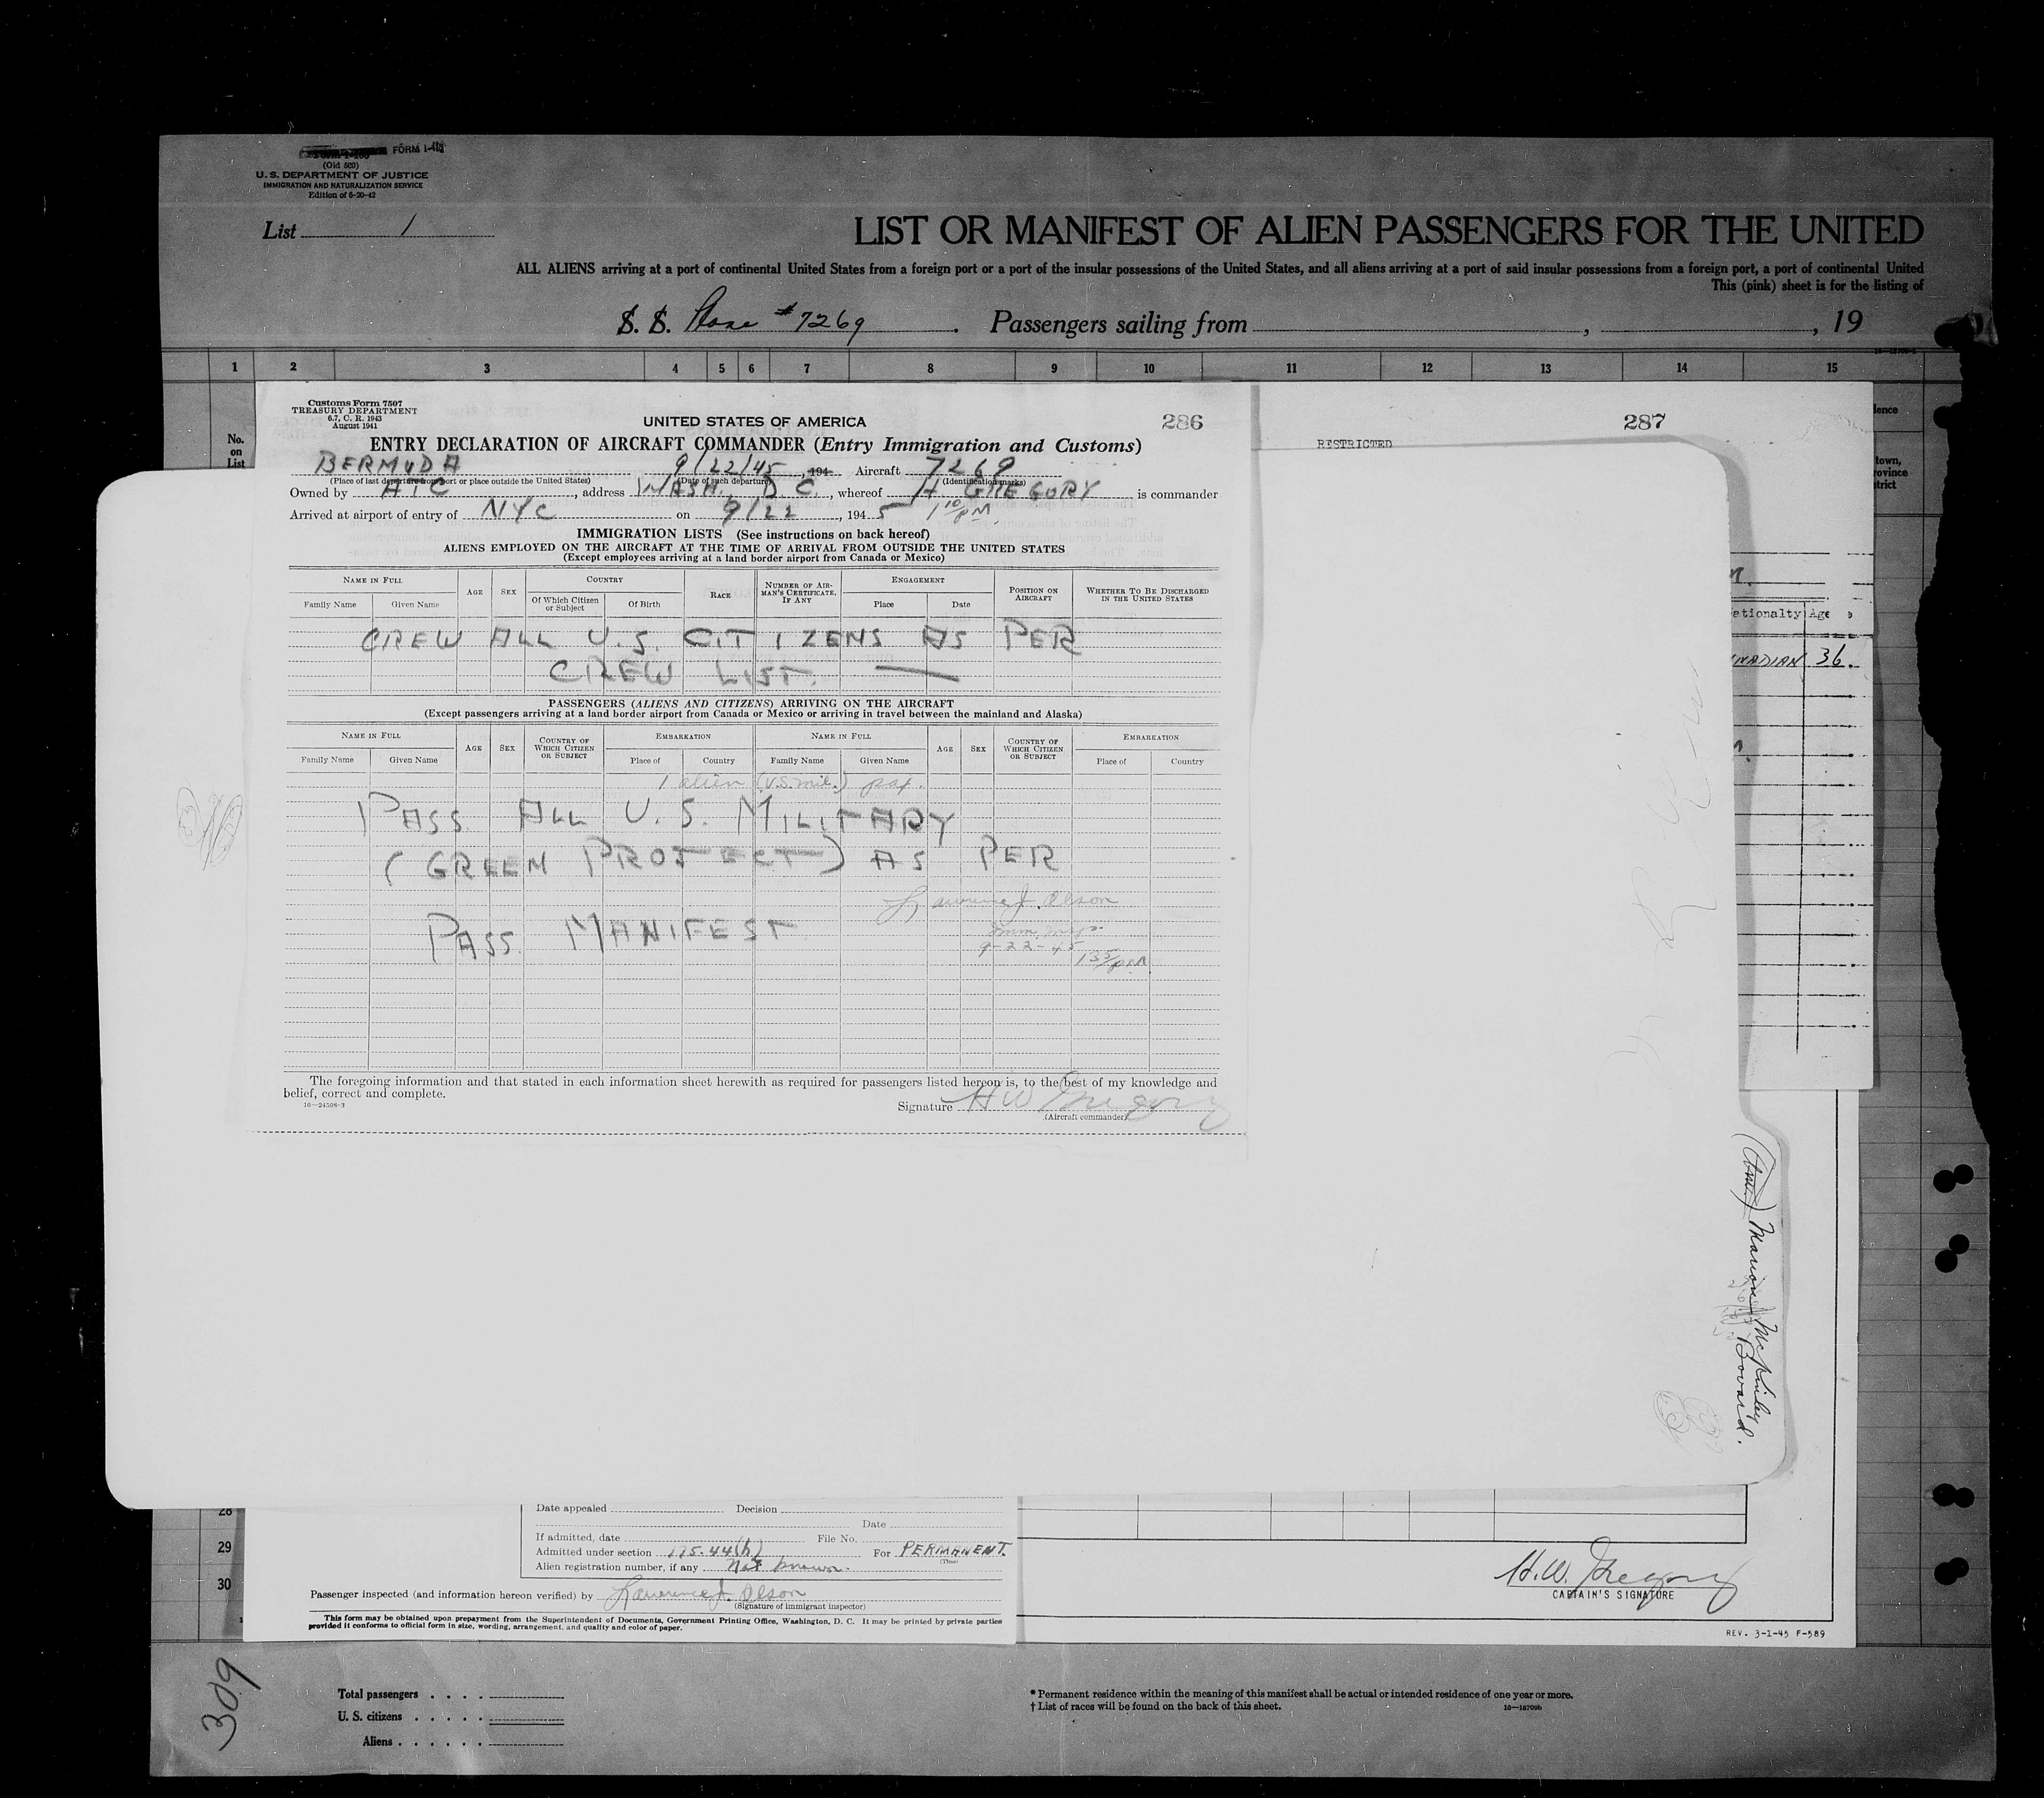 FORM I-415
(Old 500)
U. S. DEPARTMENT OF JUSTICE
IMMIGRATION AND NATURALIZATION SERVICE
Edition of 6-20-42
List 1
LIST OR MANIFEST OF ALIEN PASSENGERS FOR THE UNITED
ALL ALIENS arriving at a port of continental United States from a foreign port or a port of the insular possessions of the United States, and all aliens arriving at a port of said insular possessions from a foreign port, a port of continental United
This (pink) sheet is for the listing of
S. S. Plane #7269 . Passengers sailing from , , 19
1 2 3 4 5 6 7 8 9 10 11 12 13 14 15
No.
on
List
Customs Form 7507
TREASURY DEPARTMENT
6.7, C. R. 1943
August 1941
UNITED STATES OF AMERICA
286
ENTRY DECLARATION OF AIRCRAFT COMMANDER (Entry Immigration and Customs)
BERMUDA 9/22/45, 194 Aircraft 7269
(Place of last departure from port or place outside the United States) (Date of such departure) (Identification marks)
Owned by ATC, address WASH., D C., whereof H GREGORY is commander
Arrived at airport of entry of NYC on 9/22, 1945 1 10/PM.
IMMIGRATION LISTS (See instructions on back hereof)
ALIENS EMPLOYED ON THE AIRCRAFT AT THE TIME OF ARRIVAL FROM OUTSIDE THE UNITED STATES
(Except employees arriving at a land border airport from Canada or Mexico)
NAME IN FULL AGE SEX COUNTRY RACE NUMBER OF AIRMAN'S CERTIFICATE, IF ANY ENGAGEMENT POSITION ON AIRCRAFT WHETHER TO BE DISCHARGED IN THE UNITED STATES
Family Name Given Name Of Which Citizen or Subject Of Birth Place Date
CREW ALL U.S. CITIZENS AS PER
CREW LIST. —
PASSENGERS (ALIENS AND CITIZENS) ARRIVING ON THE AIRCRAFT
(Except passengers arriving at a land border airport from Canada or Mexico or arriving in travel between the mainland and Alaska)
NAME IN FULL AGE SEX COUNTRY OF WHICH CITIZEN OR SUBJECT EMBARKATION NAME IN FULL AGE SEX COUNTRY OF WHICH CITIZEN OR SUBJECT EMBARKATION
Family Name Given Name Place of Country Family Name Given Name Place of Country
1 alien (U.S. mil.) pax.
PASS. ALL U. S. MILITARY
(GREEN PROJECT) AS PER
Lawrence J. Olson
PASS. MANIFEST
Imm. Insp.
9-22-45
1 35/PM
The foregoing information and that stated in each information sheet herewith as required for passengers listed hereon is, to the best of my knowledge and
belief, correct and complete.
16—24508-3
Signature H W Gregory
(Aircraft commander)
287
RESTRICTED
ationalty Age
NADIAN 36.
(Cont.) Marion McKinley
Bovard.
28
29
30
Date appealed Decision
Date
If admitted, date File No.
Admitted under section 175.44(h) For PERMANENT.
(Time)
Alien registration number, if any Not known.
Passenger inspected (and information hereon verified) by Lawrence J. Olson
(Signature of immigrant inspector)
This form may be obtained upon prepayment from the Superintendent of Documents, Government Printing Office, Washington, D. C. It may be printed by private parties
provided it conforms to official form in size, wording, arrangement, and quality and color of paper.
H.W. Gregory
CAPTAIN'S SIGNATURE
REV. 3-1-45 F-589
309
Total passengers . . . .
U. S. citizens . . . . .
Aliens . . . . . .
* Permanent residence within the meaning of this manifest shall be actual or intended residence of one year or more.
† List of races will be found on the back of this sheet.
16—18709b